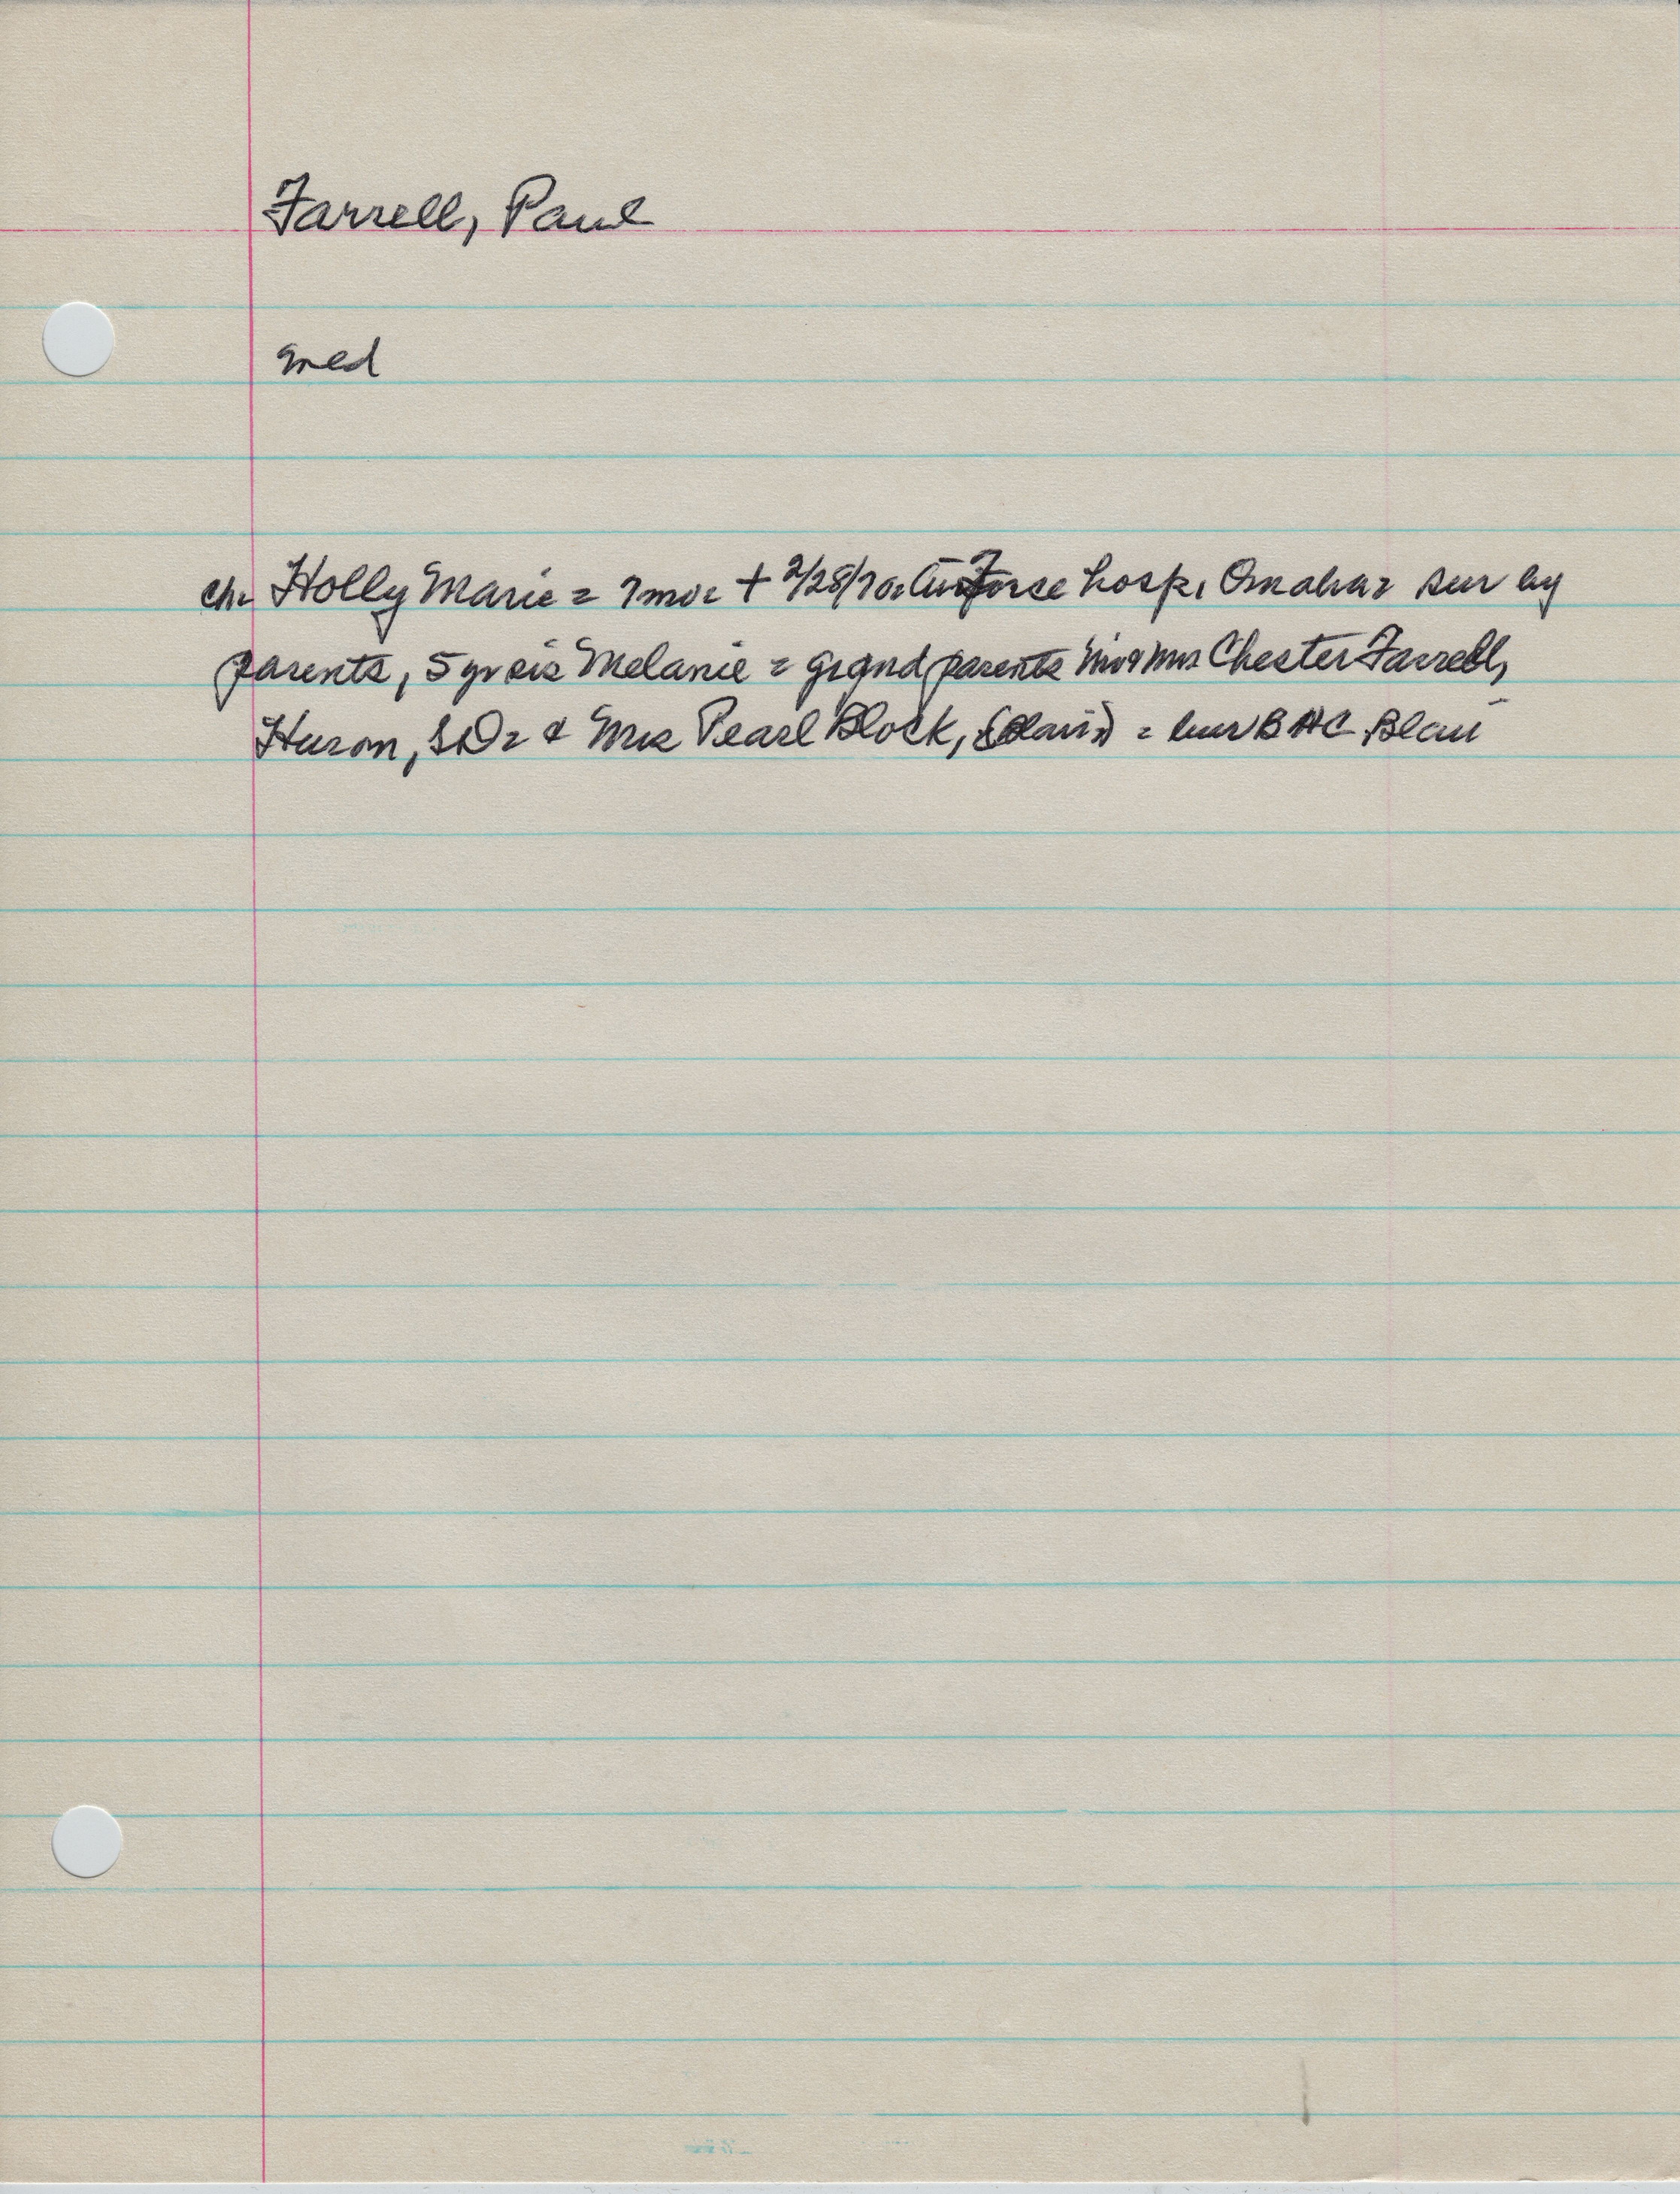 Farrell, Paul
med
ch. Holly Marie = 7 mo = + 2/28/70 = Air Forse hosp. Omaha = sur by
parents, 5 yr sis Melanie = grand parents Mr & Mrs Chester Farrell,
Huron, SD = & Mrs Pearl Block, (Blair) = bur B HC Blair